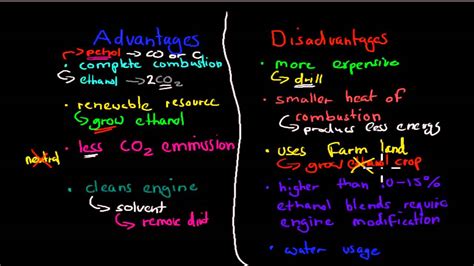 Advantages
petrol → CO or C
• complete combustion
ethanol → 2CO2
• renewable resource
grow ethanol
neutral
• less CO2 emmission
• cleans engine
solvent
→ remove dirt
Disadvantages
• more expensive
drill
• smaller heat of
combustion
produces less energy
• uses Farm land
→ grow ethanol crop
• higher than 10-15%
ethanol blends require
engine modification
• water usage